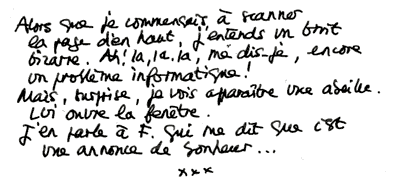 Alors que je commençais à scanner
la page d'en haut, j'entends un bruit
bizarre. Ah! la, la, la, me dis-je, encore
un problème informatique!
Mais, surprise, je vois aparaître une abeille.
Lui ouvre la fenêtre.
J'en parle à F. qui me dit que c'est
une annonce de bonheur...
xxx